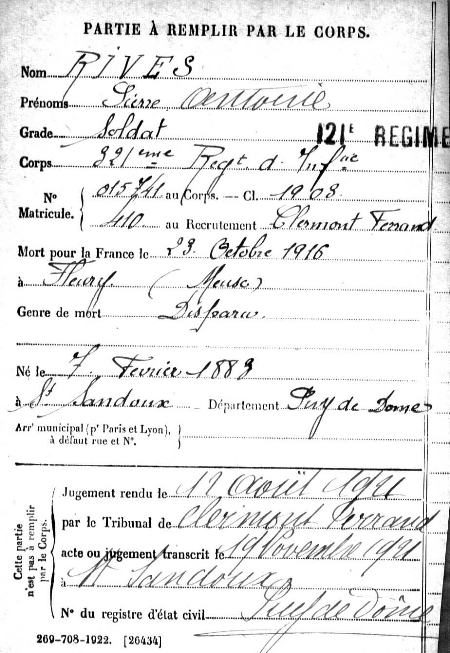 PARTIE À REMPLIR PAR LE CORPS.
Nom RIVES
Prénoms Pierre Antoine
Grade Soldat
121E REGIME
Corps 321ème Regt d'Infrie
No Matricule. { 015741 au Corps. — Cl. 1908
410 au Recrutement Clermont Ferrand
Mort pour la France le 23 Octobre 1916
à Fleury (Meuse)
Genre de mort Disparu
Né le 7 Fevrier 1888
à St Sandoux Département Puy de Dome
Arrt municipal (pr Paris et Lyon), à défaut rue et No. }
Cette partie n'est pas à remplir par le Corps.
Jugement rendu le 12 Août 1921
par le Tribunal de Clermont Ferrand
acte ou jugement transcrit le 19 Novembre 1921
à St Sandoux
No du registre d'état civil Puy de Dôme
269-708-1922. [26434]